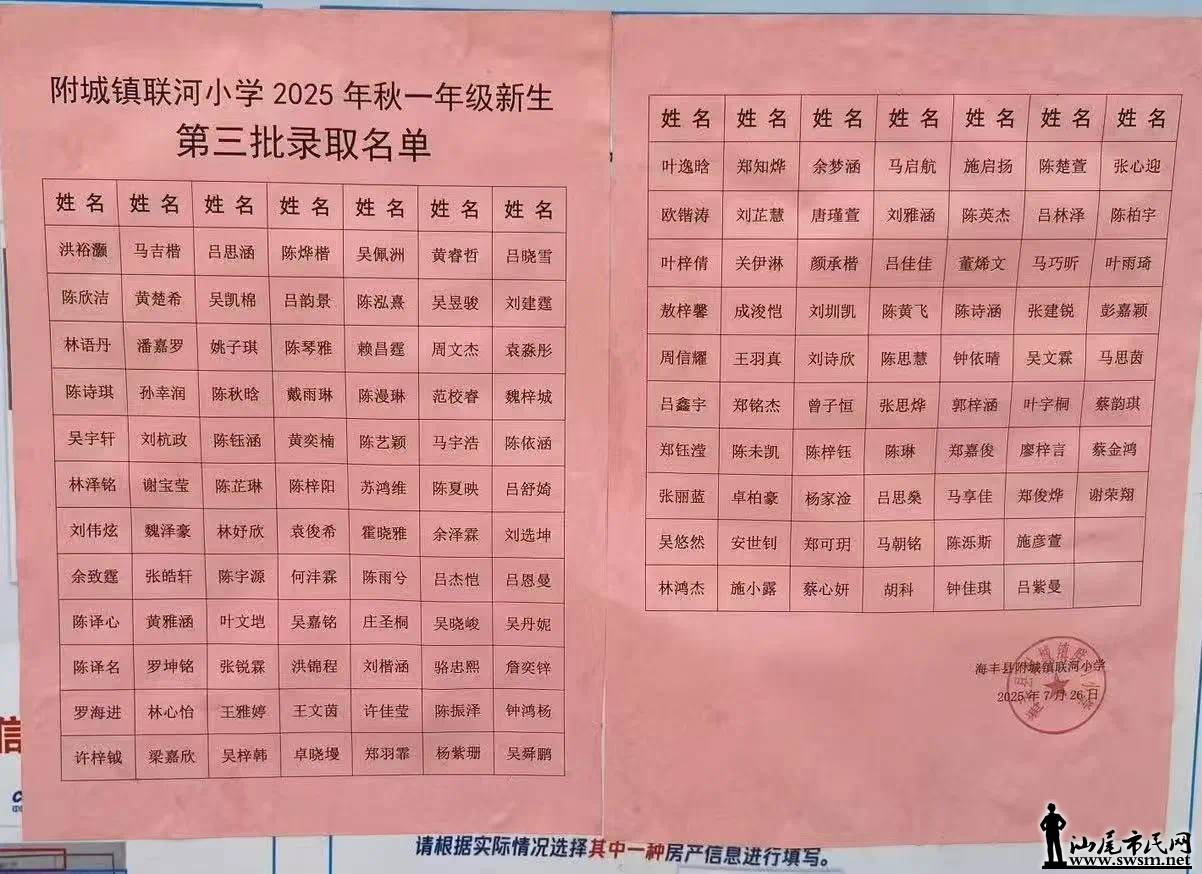 附城镇联河小学 2025 年秋一年级新生
第三批录取名单
姓名 姓名 姓名 姓名 姓名 姓名 姓名
洪裕灏 马吉楷 吕思涵 陈烨楷 吴佩洲 黄睿哲 吕晓雪
陈欣洁 黄楚希 吴凯棉 吕韵景 陈泓熹 吴昱骏 刘建霆
林语丹 潘嘉罗 姚子琪 陈琴雅 赖昌霆 周文杰 袁淼彤
陈诗琪 孙幸润 陈秋晗 戴雨琳 陈漫琳 范校睿 魏梓城
吴宇轩 刘杭政 陈钰涵 黄奕楠 陈艺颖 马宇浩 陈依涵
林泽铭 谢宝莹 陈芷琳 陈梓阳 苏鸿维 陈夏映 吕舒婍
刘伟炫 魏泽豪 林妤欣 袁俊希 霍晓雅 余泽霖 刘选坤
余致霆 张皓轩 陈宇源 何沣霖 陈雨兮 吕杰恺 吕恩曼
陈译心 黄雅涵 叶文垲 吴嘉铭 庄圣桐 吴晓峻 吴丹妮
陈译名 罗坤铭 张锐霖 洪锦程 刘楷涵 骆忠熙 詹奕锌
罗海进 林心怡 王雅婷 王文茵 许佳莹 陈振泽 钟鸿杨
许梓钺 梁嘉欣 吴梓韩 卓晓墁 郑羽霏 杨紫珊 吴舜鹏
姓名 姓名 姓名 姓名 姓名 姓名 姓名
叶逸晗 郑知烨 余梦涵 马启航 施启扬 陈楚萱 张心迎
欧锴涛 刘芷慧 唐瑾萱 刘雅涵 陈英杰 吕林泽 陈柏宇
叶梓倩 关伊淋 颜承楷 吕佳佳 董烯文 马巧昕 叶雨琦
敖梓馨 成浚恺 刘圳凯 陈黄飞 陈诗涵 张建锐 彭嘉颖
周信耀 王羽真 刘诗欣 陈思慧 钟依晴 吴文霖 马思茵
吕鑫宇 郑铭杰 曾子恒 张思烨 郭梓涵 叶字桐 蔡韵琪
郑钰滢 陈未凯 陈梓钰 陈琳 郑嘉俊 廖梓言 蔡金鸿
张丽蓝 卓柏豪 杨家淦 吕思燊 马享佳 郑俊烨 谢荣翔
吴悠然 安世钊 郑可玥 马朝铭 陈泺斯 施彦萱
林鸿杰 施小露 蔡心妍 胡科 钟佳琪 吕紫曼
海丰县附城镇联河小学
2025 年 7 月 26 日
信
请根据实际情况选择其中一种房产信息进行填写。
汕尾市民网
www.swsm.net